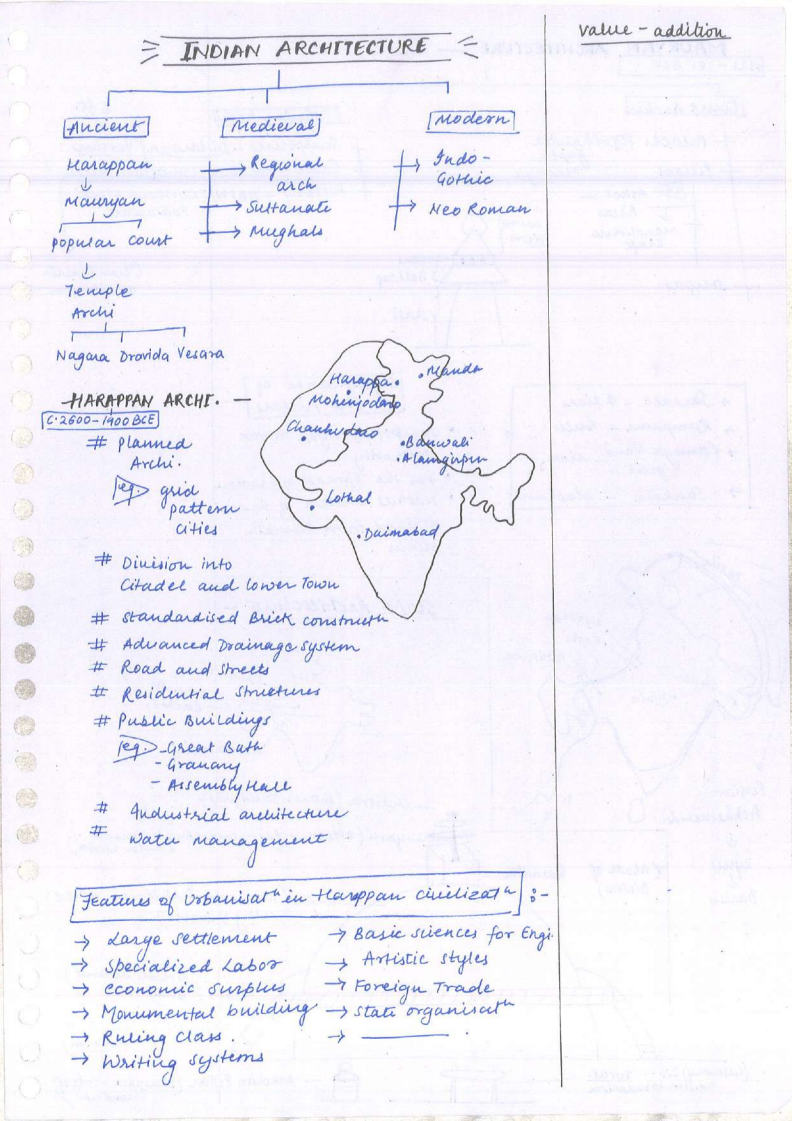 value - addition
INDIAN ARCHITECTURE
Ancient
Harappan
Mauryan
popular court
Temple
Archi
Nagara Dravida Vesara
Medieval
Regional
arch
Sultanate
Mughals
Modern
Indo-
Gothic
Neo Roman
Harappa
Manda
Mohenjodaro
Chanhudaro
Banwali
Alamgirpur
Lothal
Daimabad
HARAPPAN ARCHI. —
C.2600-1900 BCE
# Planned
Archi.
eg. grid
pattern
cities
# Division into
Citadel and Lower Town
# Standardised Brick constructn
# Advanced Drainage System
# Road and streets
# Residential structures
# Public Buildings
eg. - Great Bath
- Granary
- Assembly Hall
# Industrial architecture
# Water management
Features of Urbanisatn in Harappan civilizatn :-
→ Large settlement
→ Specialized Labor
→ economic surplus
→ Monumental building
→ Ruling class.
→ Writing systems
→ Basic sciences for Engi.
→ Artistic styles
→ Foreign Trade
→ State organisatn
→ ————